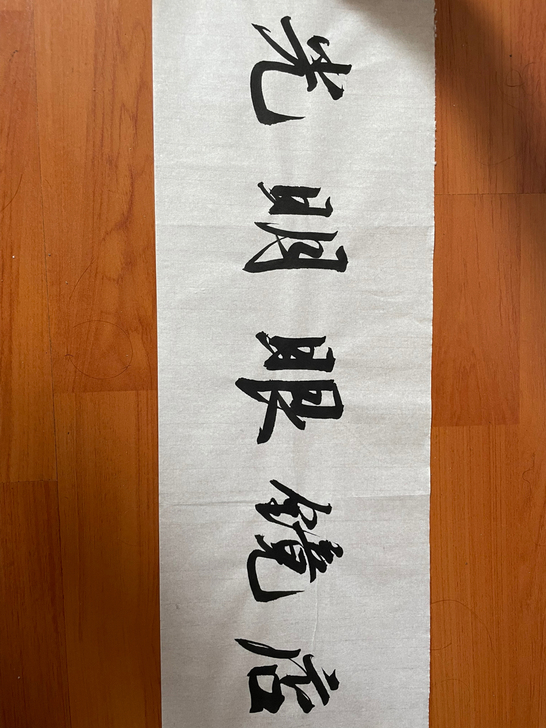 光明眼镜店